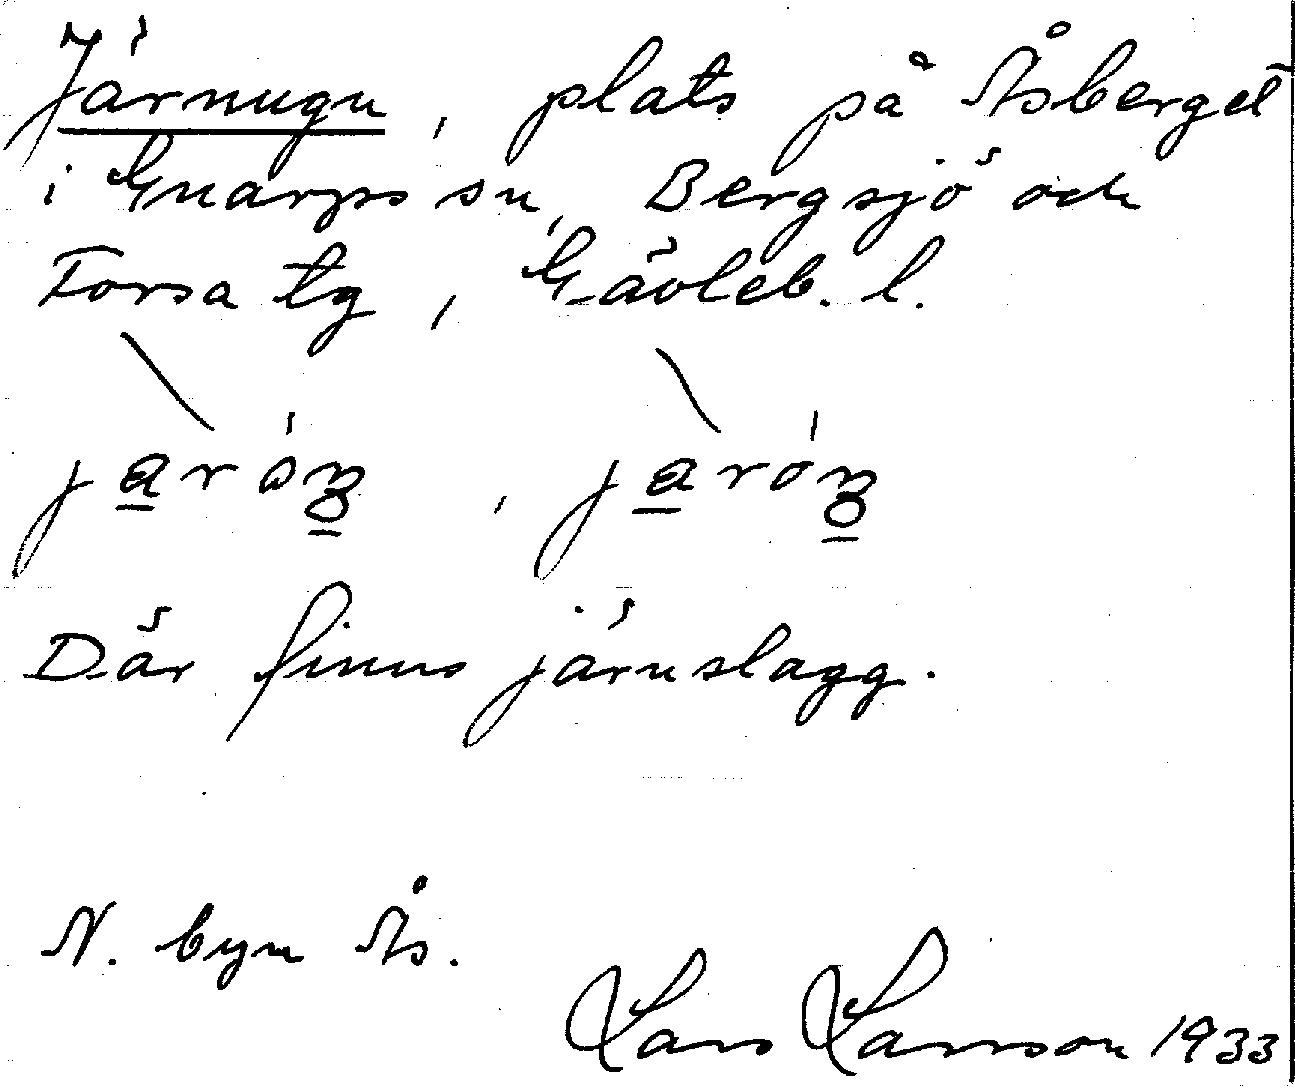 Järnugn, plats på Åsberget
i Gnarps sn, Bergsjö och
Forsa tg, Gävleb. l.
Där finns järnslagg.
N. byn Ås.
Lars Larsson 1933